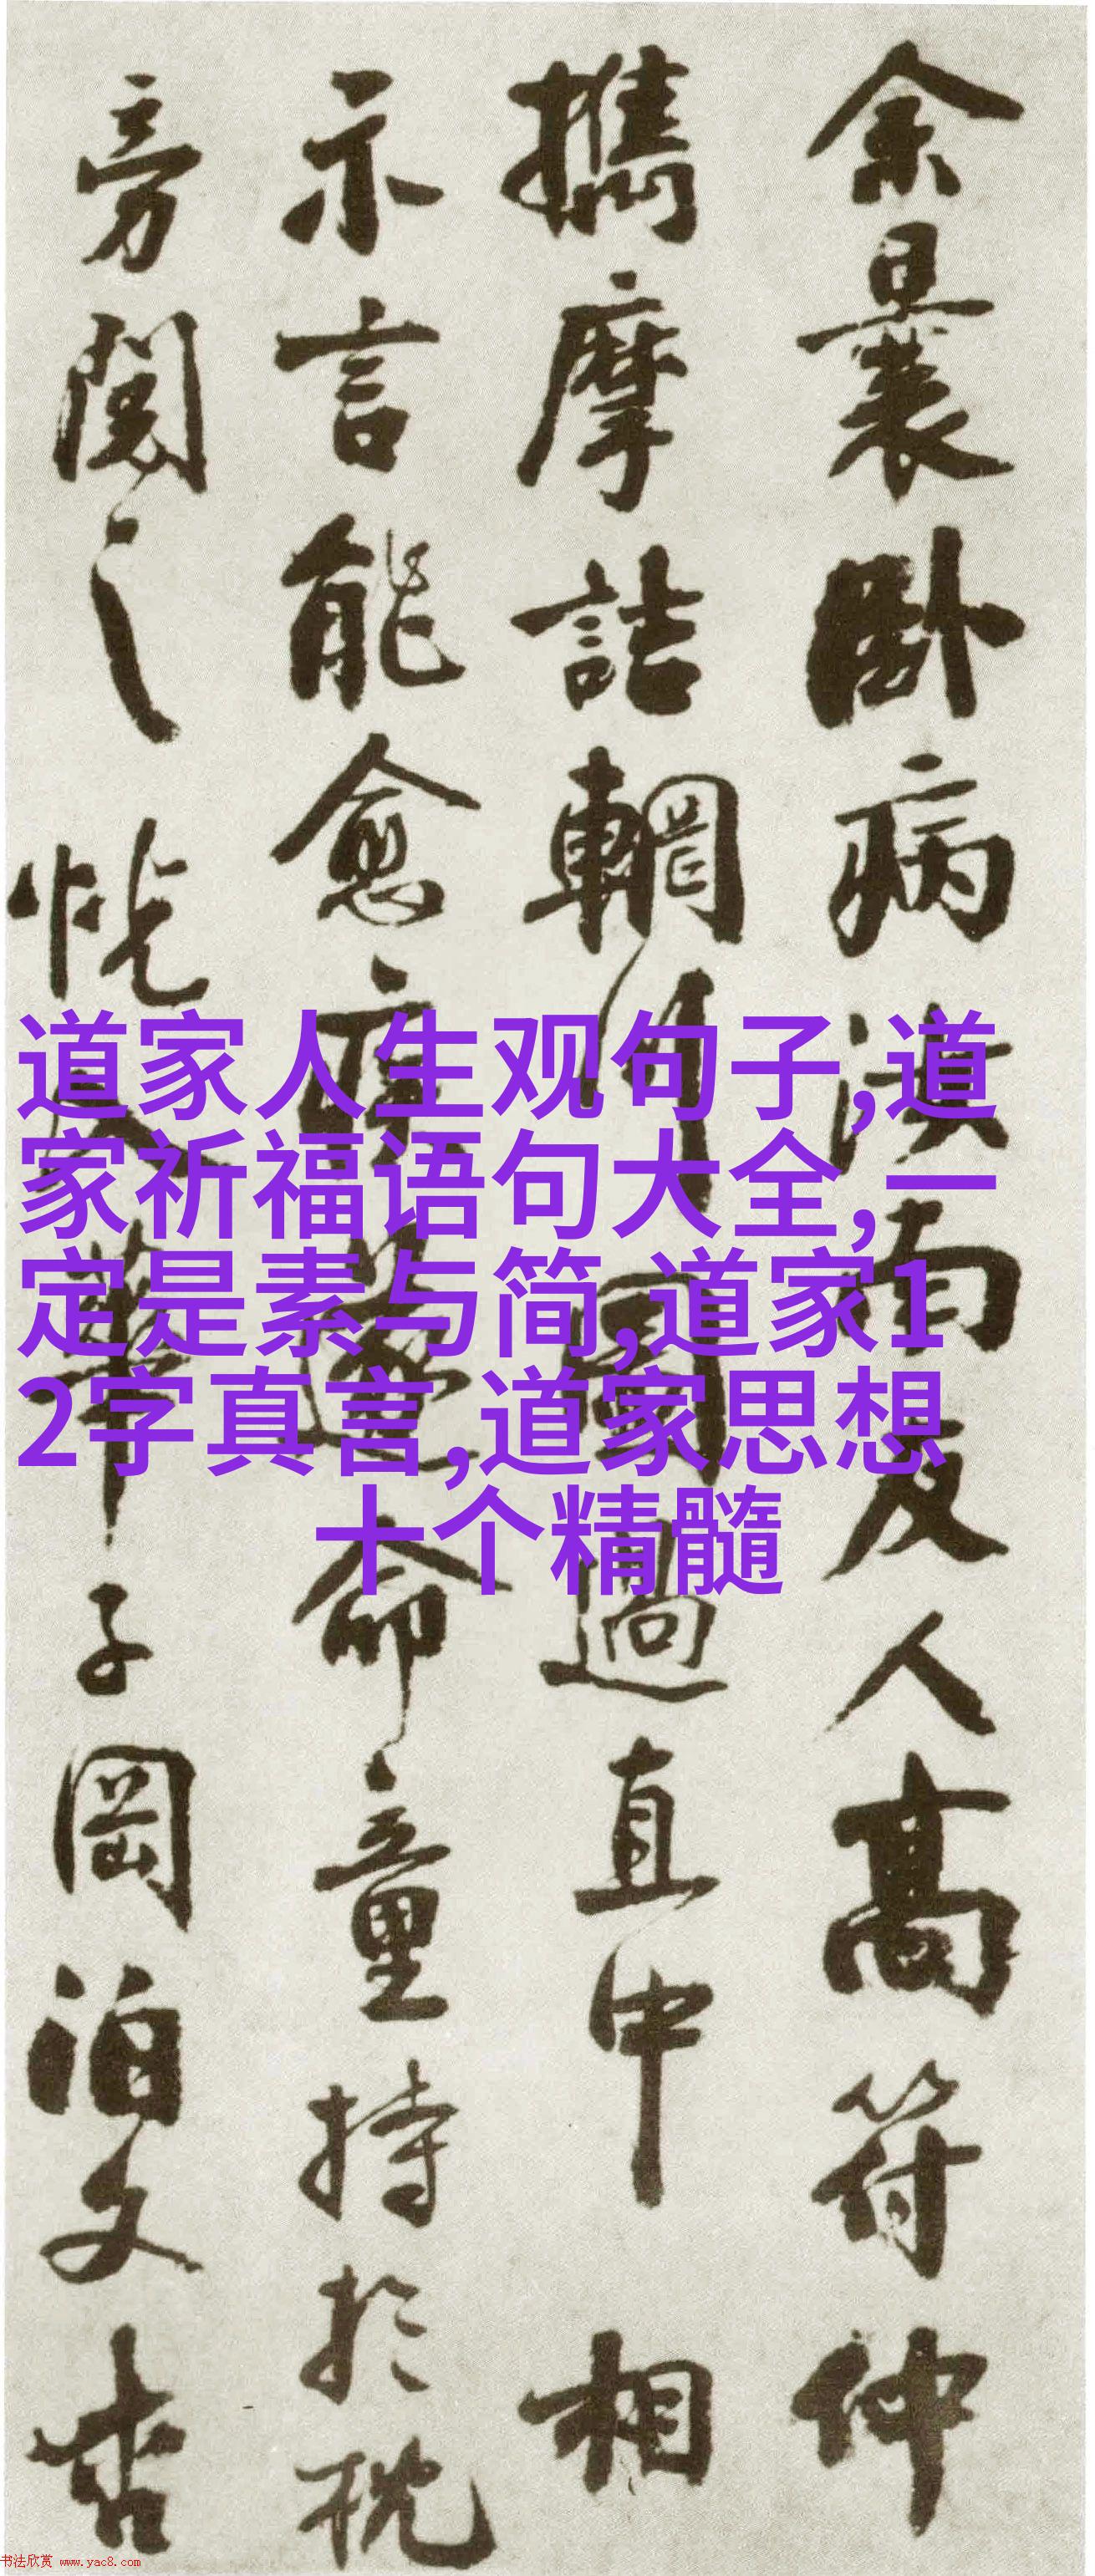 余曩卧病漢南友人高符仲
攜摩詰輞川圖過直中相
示言能愈疾遂命童持於枕
旁閱之恍入華子岡泊文杏
道家人生观句子,道
家祈福语句大全,一
定是素与简,道家1
2字真言,道家思想
十个精髓
书法欣赏 www.yac8.com